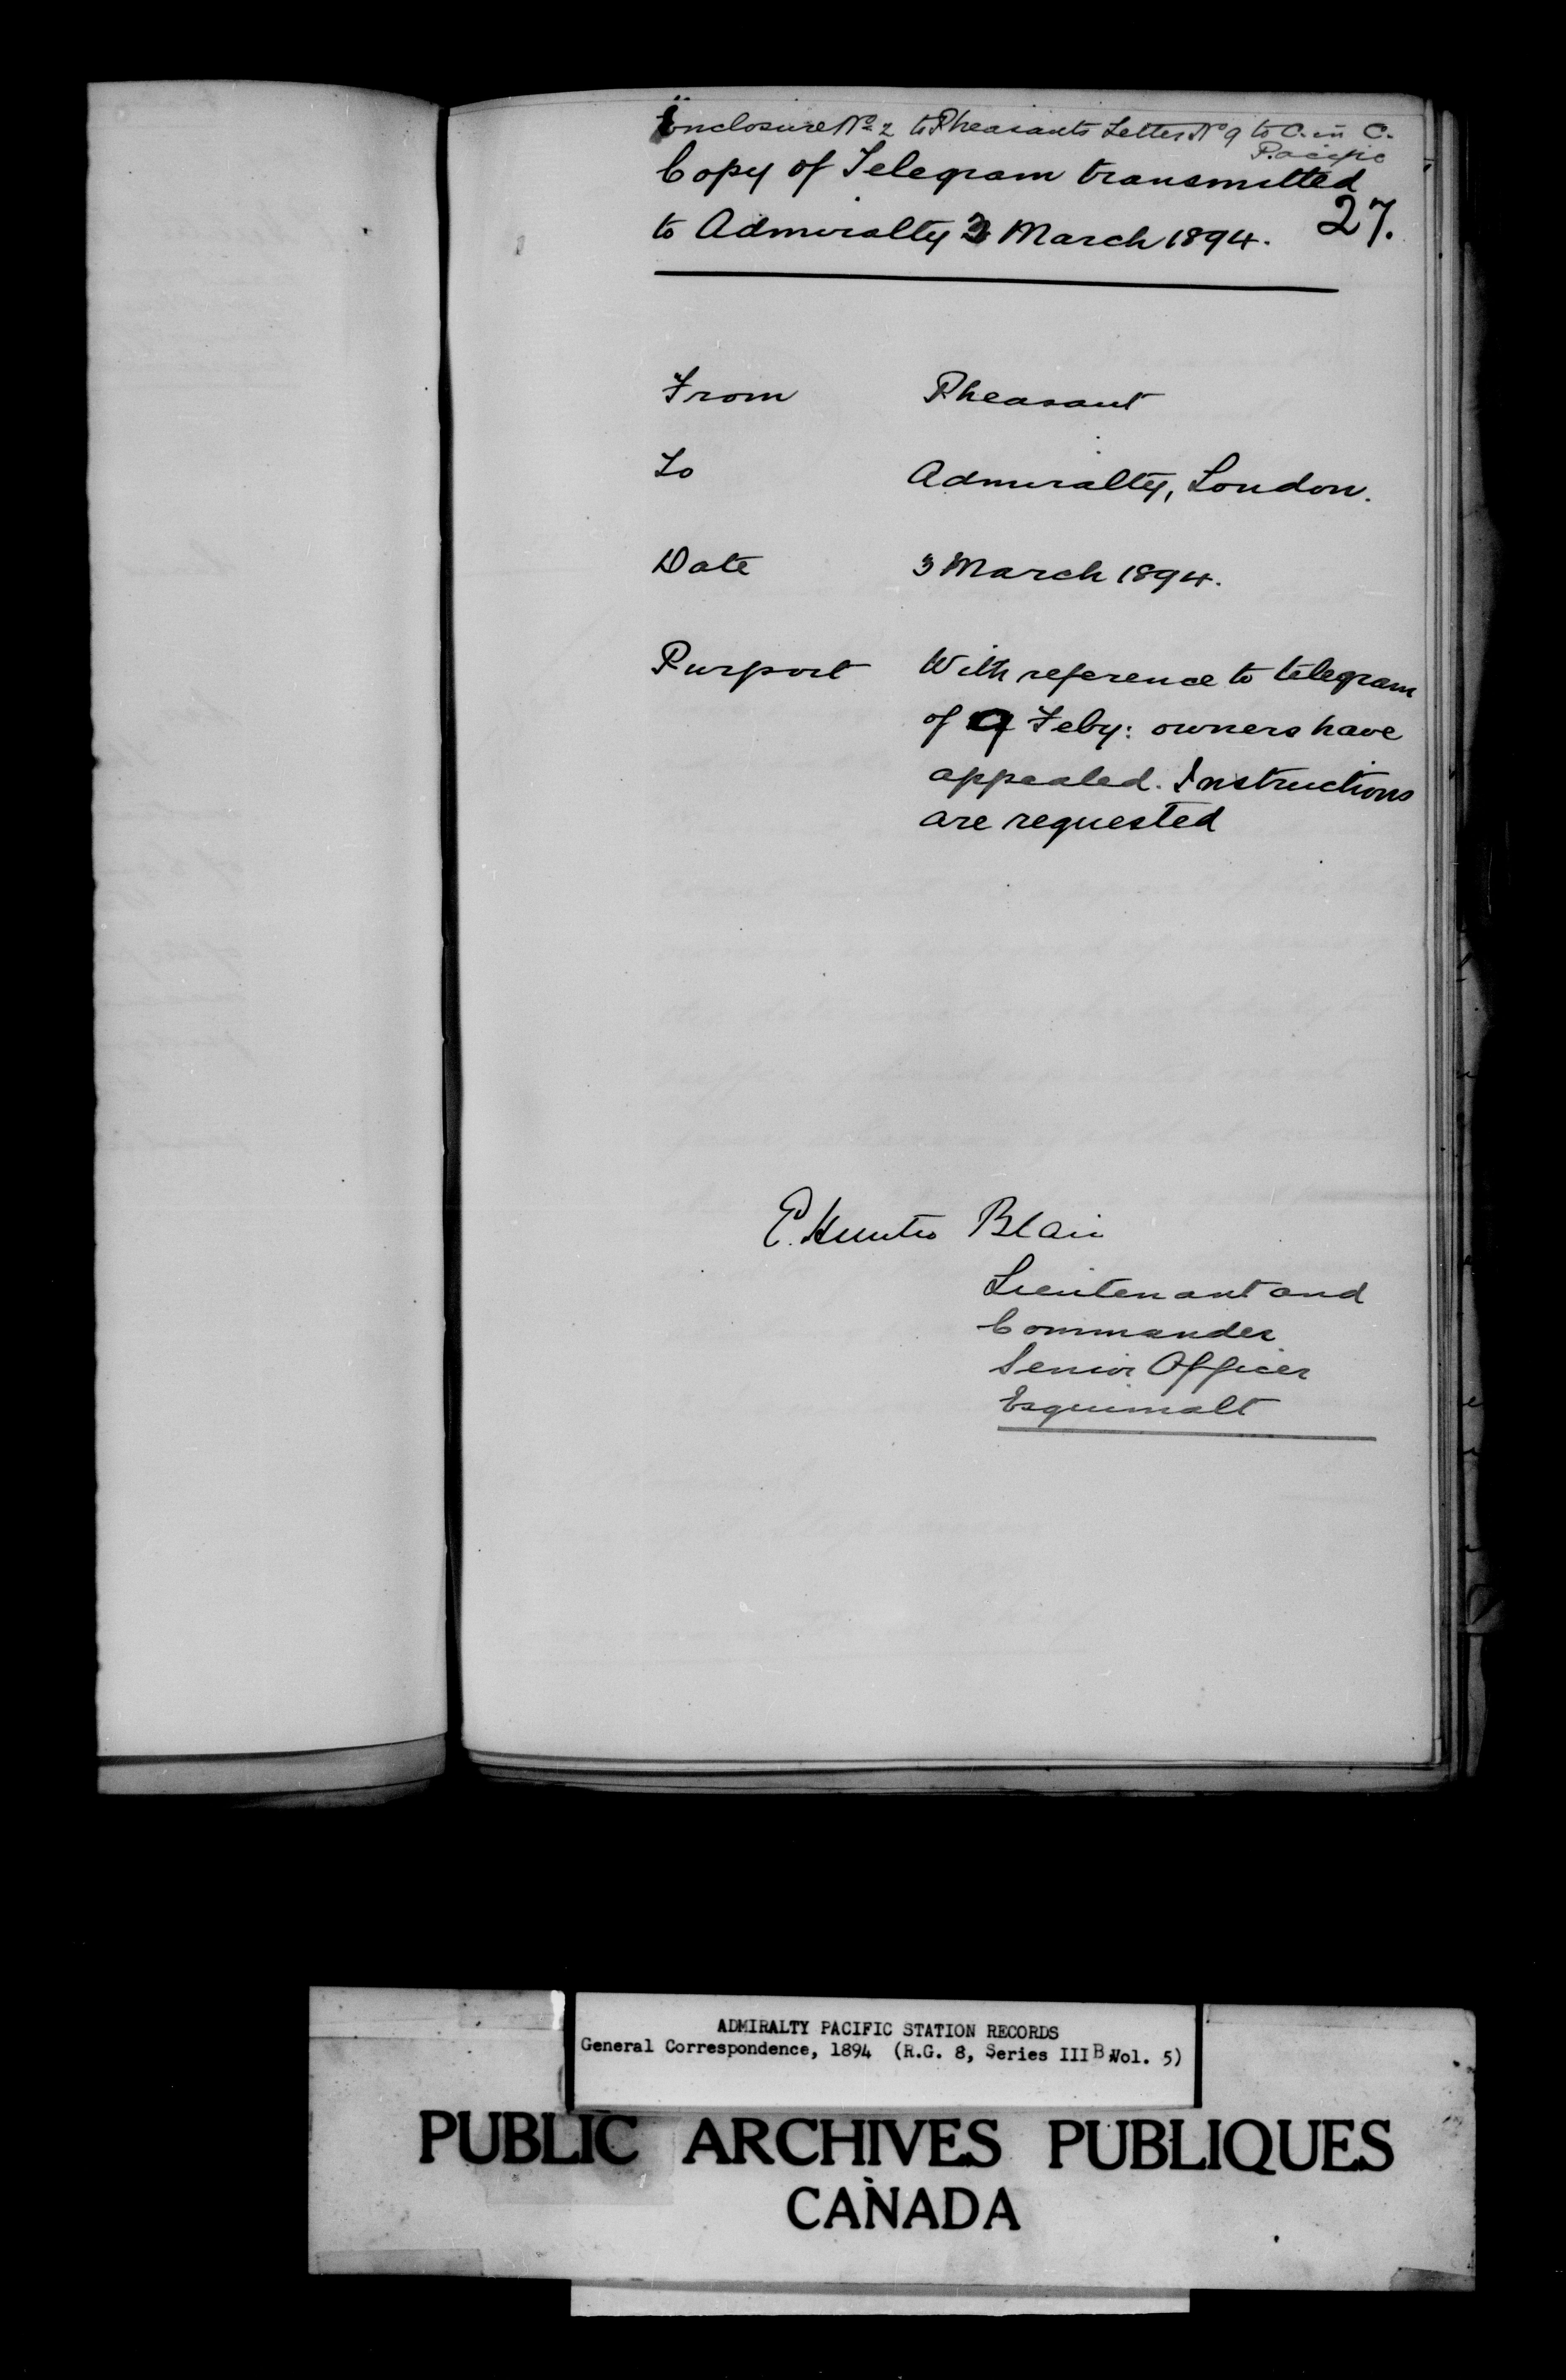 Enclosure No 2 to Pheasants Letter No 9 to C. in C.
Pacific
Copy of Telegram transmitted
to Admiralty 3 March 1894.
27.
From Pheasant
To Admiralty, London.
Date 3 March 1894.
Purport With reference to telegram
of 9 Feby: owners have
appealed. Instructions
are requested
E. Hunter Blair
Lieutenant and
Commander
Senior Officer
Esquimalt
ADMIRALTY PACIFIC STATION RECORDS
General Correspondence, 1894 (R.G. 8, Series III B Vol. 5)
PUBLIC ARCHIVES PUBLIQUES
CANADA